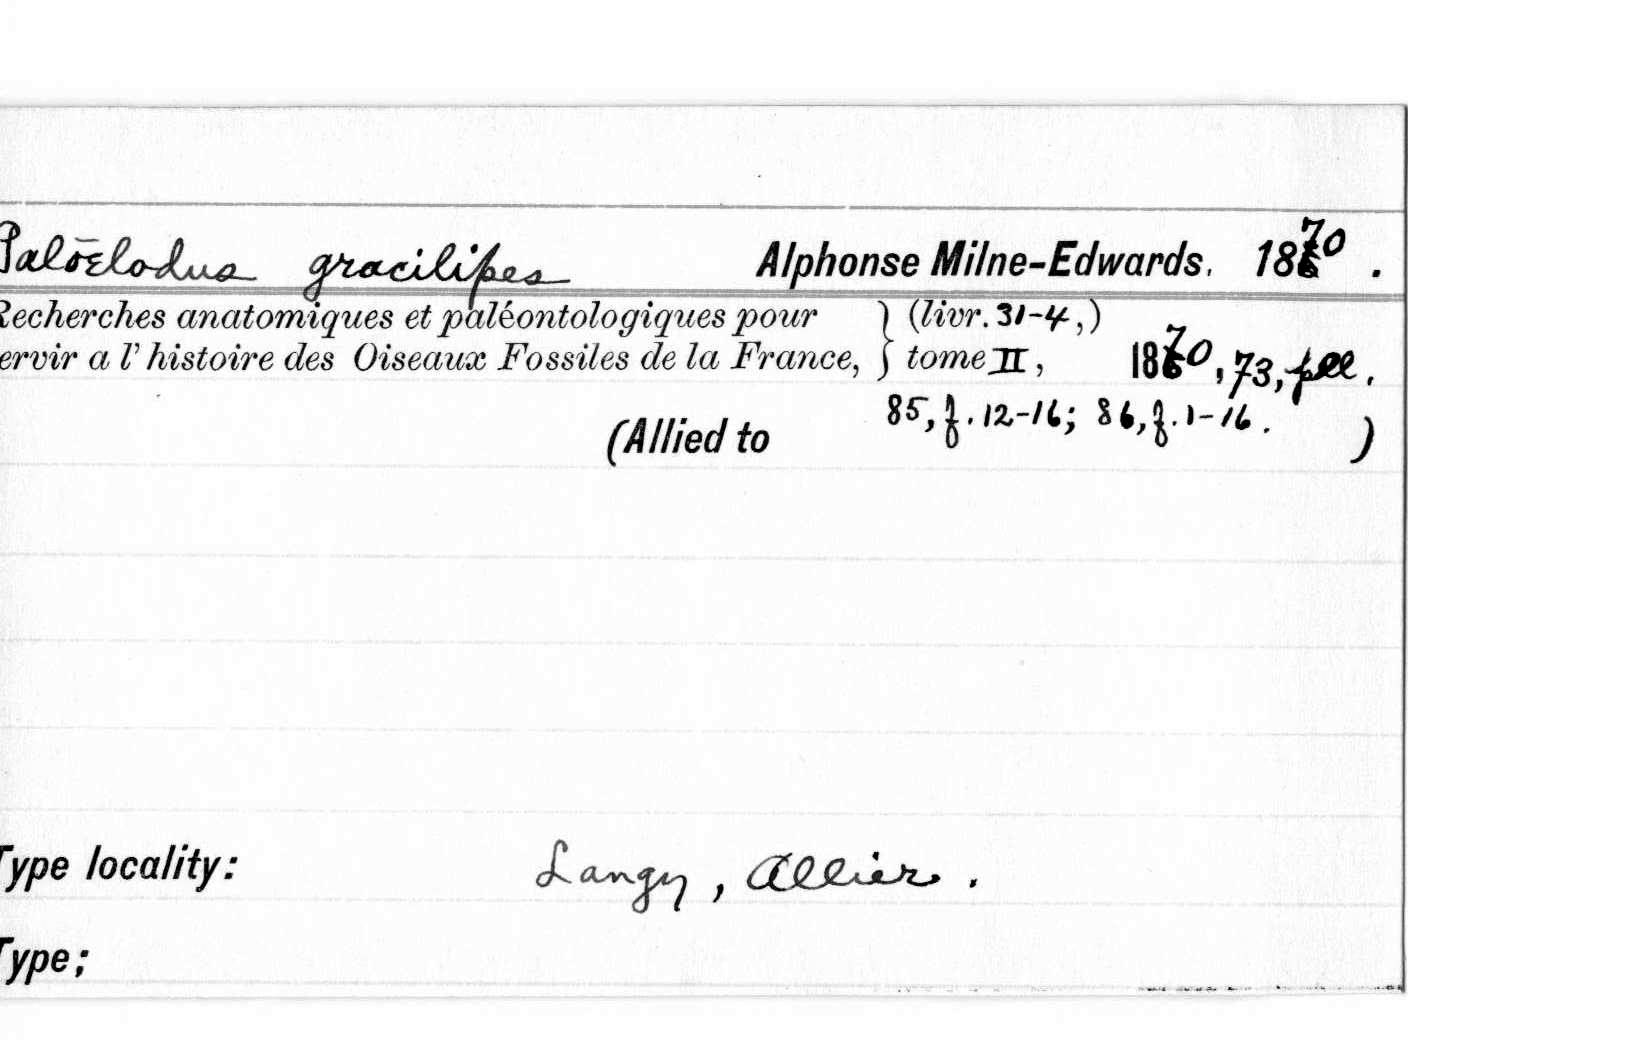 Palœlodus gracilipes Alphonse Milne-Edwards. 1870.
Recherches anatomiques et paléontologiques pour } (livr. 31-4,)
ervir a l'histoire des Oiseaux Fossiles de la France, } tome II, 1870, 73, pll.
85, f. 12-16; 86, f. 1-16.
(Allied to )
Type locality: Langy, Allier.
Type;